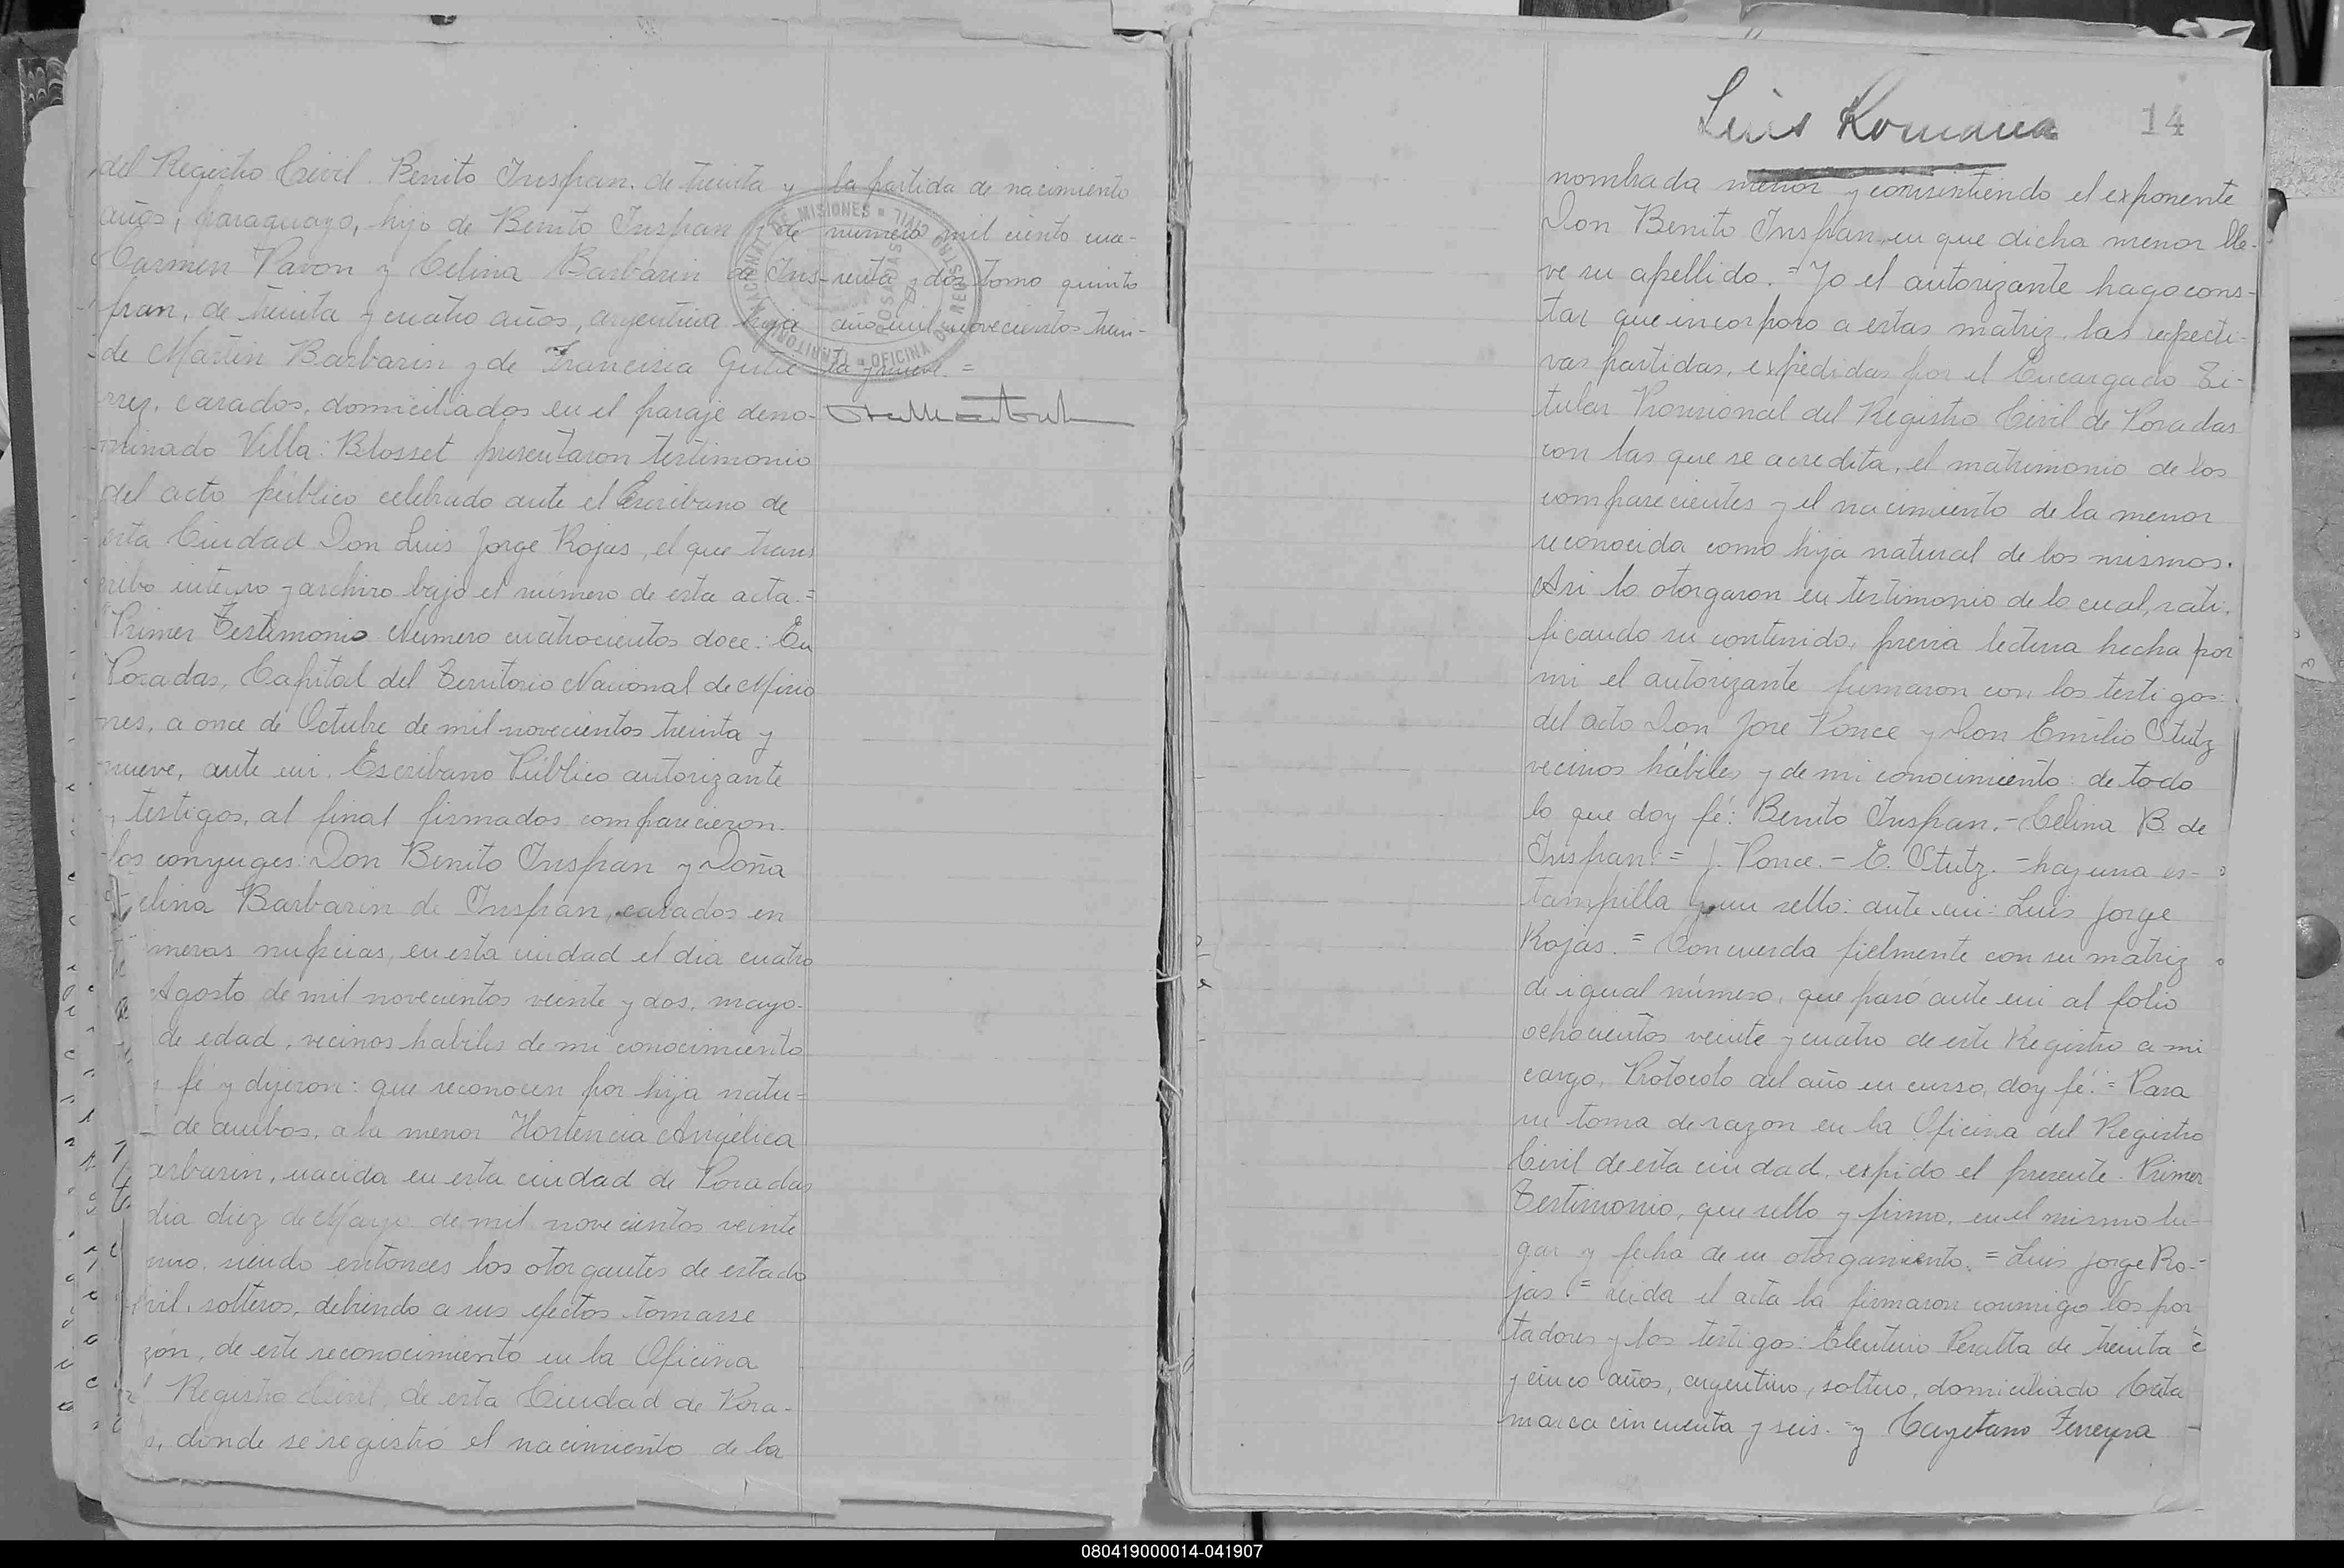 del Registro Civil. Benito Insfran, de treinta y
años, paraguayo, hijo de Benito Insfran y de
Carmen Pavon y Celina Barbarin de Ins-
fran, de treinta y cuatro años, argentina hija
de Martin Barbarin y de Francisca Gutie
rrez, casados, domiciliados en el paraje deno-
minado Villa: Blosset presentaron testimonio
del acto público celebrado ante el Escribano de
esta Ciudad Don Luis Jorge Rojas, el que trans
cribo integro y archivo bajo el número de esta acta.=
"Primer Testimonio Numero cuatrocientos doce: En
Posadas, Capital del Territorio Nacional de Misio
nes, a once de Octubre de mil novecientos treinta y
nueve, ante mi. Escribano Público autorizante
y testigos, al final firmados comparecieron.
los conyuges: Don Benito Insfran y Doña
Celina Barbarin de Insfran, casados en
meras nupcias, en esta ciudad el dia cuatro
Agosto de mil novecientos veinte y dos, mayo-
de edad, vecinos habiles de mi conocimiento
fé y dijeron: que reconocen por hija natu=
de ambos, a la menor Hortencia Angélica
arbarin, nacida en esta ciudad de Posadas
dia diez de Mayo de mil novecientos veinte
uno, siendo entonces los otorgantes de estado
civil, solteros, debiendo a sus efectos tomarse
zón, de este reconocimiento en la Oficina
Registro Civil, de esta Ciudad de Posa-
s, donde se registró el nacimiento de la
la partida de nacimiento
número mil ciento cua-
renta y dos tomo quinto
año mil novecientos trein-
ta y nueve. =
TERRITORIO NACIONAL DE MISIONES
OFICINA DE REGISTRO CIVIL
POSADAS
Luis Romana
14
nombrada menor y consintiendo el exponente
Don Benito Insfran, en que dicha menor lle-
ve su apellido. = Yo el autorizante hago cons-
tar que incorporo a estas matriz, las respecti-
vas partidas, expedidas por el Encargado Ti-
tular Provisional del Registro Civil de Posadas
con las que se acredita, el matrimonio de los
comparecientes y el nacimiento de la menor
reconocida como hija natural de los mismos.
Asi lo otorgaron en testimonio de lo cual, rati-
ficando su contenido, previa lectura hecha por
mi el autorizante firmaron con los testigos
del acto Don Jose Ponce y Don Emilio Stutz
vecinos hábiles y de mi conocimiento: de todo
lo que doy fé: Benito Insfran.- Celina B. de
Insfran = J. Ponce. - E. Stutz. - hay una es-
tampilla y un sello: ante mi: Luis Jorge
Rojas. = Concuerda fielmente con su matriz
de igual número, que pasó ante mi al folio
ochocientos veinte y cuatro de este Registro a mi
cargo, Protocolo del año en curso, doy fé.= Para
su toma de razon en la Oficina del Registro
Civil de esta ciudad, expido el presente. Primer
Testimonio, que sello y firmo, en el mismo lu-
gar y fecha de su otorgamiento. = Luis Jorge Ro-
jas = Leida el acta la firmaron conmigo los por
tadores y los testigos: Eleuterio Peralta de treinta
y cinco años, argentino, soltero, domiciliado Cata
marca cincuenta y seis. = y Cayetano Ferreyra
080419000014-041907